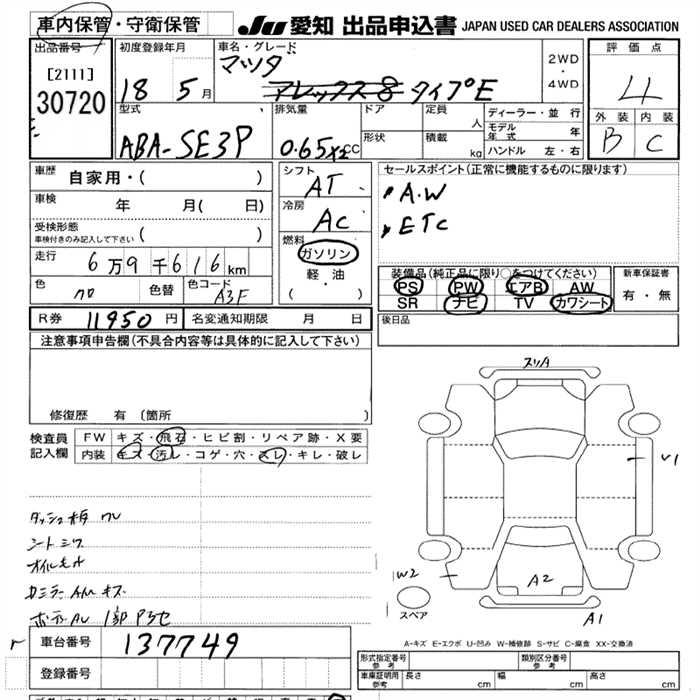 車内保管・守衛保管 JU 愛知 出品申込書 JAPAN USED CAR DEALERS ASSOCIATION
出品番号 初度登録年月 車名・グレード 評価点
[2111] 18 5月 マツダ 2WD・4WD 4
30720 アレックス8 タイプE
型式 排気量 ドア 定員 人 ディーラー・並行 外装 内装
ABA-SE3P 0.65x2cc 形状 積載 kg モデル年式 年 B C
ハンドル 左・右
車歴 自家用・( ) シフト AT セールスポイント(正常に機能するものに限ります)
車検 年 月( 日) 冷房 AC A.W
受検形態 ( ) ETC
車検付きのみ記入して下さい
燃料 ガソリン
走行 6万9千616km 軽・油 装備品(純正品に限り○をつけてください) 新車保証書
色 クロ 色替 色コード A3F ( ) PS PW エアB AW 有・無
SR ナビ TV カワシート
R券 11950円 名変通知期限 月 日 後日品
注意事項申告欄(不具合内容等は具体的に記入して下さい)
スリA
修復歴 有 〔箇所 〕
検査員 FW キズ・飛石・ヒビ割・リペア跡・X要
記入欄 内装 キズ・汚レ・コゲ・穴・スレ・キレ・破レ
U1
ダッシュ板ワレ
シートシワ
W2 A2
スペア
A1
A-キズ E-エクボ U-凹み W-補修跡 S-サビ C-腐食 XX-交換済
車台番号 137749
形式指定番号 参考 類別区分番号 参考
登録番号 車庫証明用 参考 長さ cm 幅 cm 高さ cm